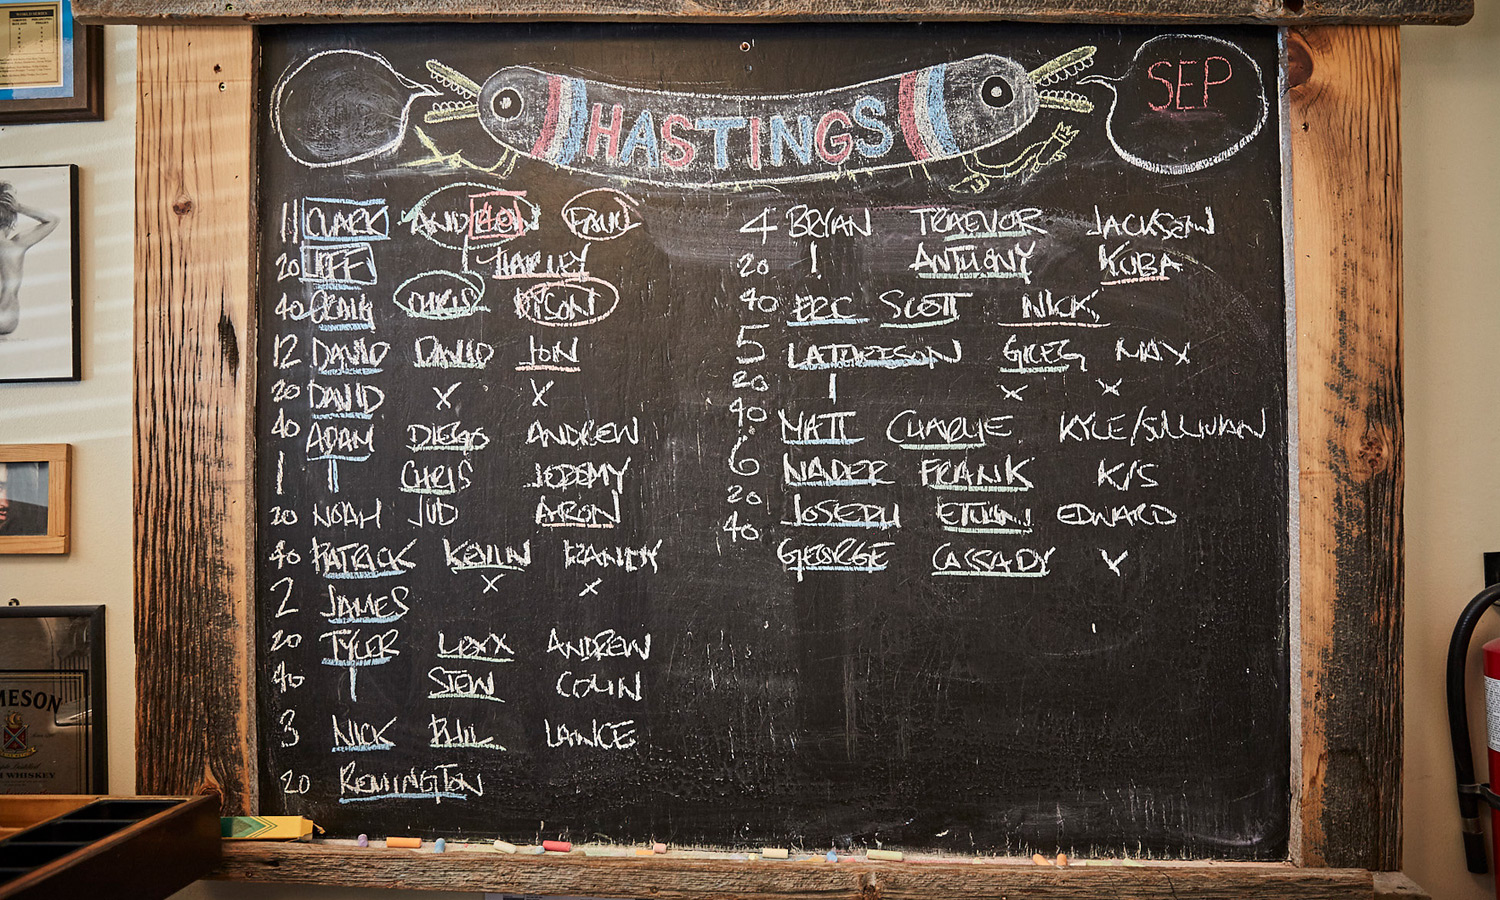 WORLD SERIES
HASTINGS
SEP
11 CLARK PAUL
20 JEFF HARLEY
40 CRAIG CHRIS TYSON
12 DAVID DAVID JON
20 DAVID X X
40 ADAM DIEGO ANDREW
1 CHRIS JEREMY
20 NOAH JUD ARON
40 PATRICK KEVIN
X X
2 JAMES
20 TYLER LEXX ANDREW
40 STEW COLIN
3 NICK PHIL LANCE
20 REMINGTON
4 BRYAN TRAEVOR JACKSON
20 ANTHONY KUBA
40 ERIC SCOTT NICK
5 GREG MAX
20 X X
40 MATT CHARLIE KYLE/SULLIVAN
6 NADER FRANK K/S
20 JOSEPH ETHAN EDWARD
40 GEORGE CASSADY X
MESON
WHISKEY